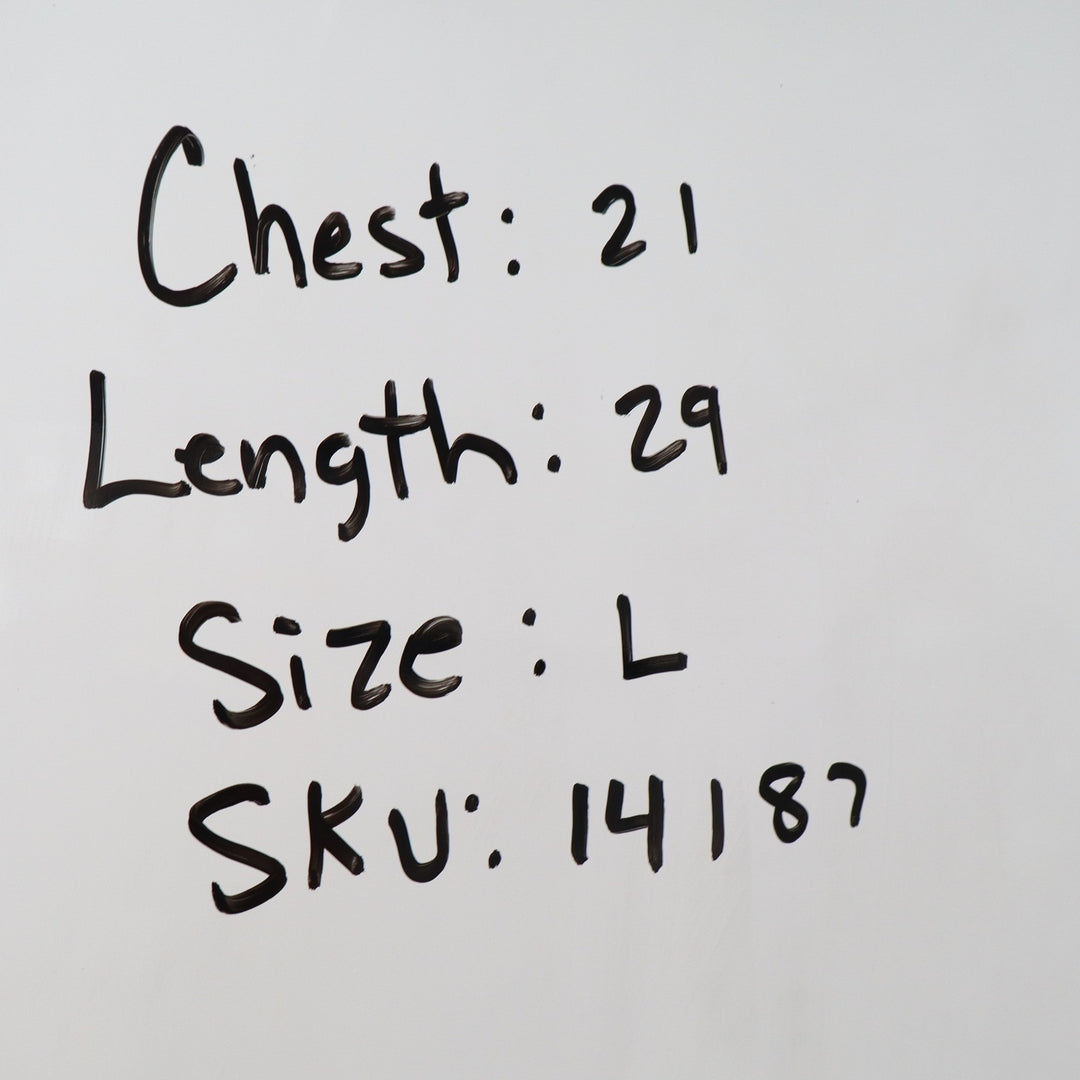 Chest: 21
Length: 29
Size: L
SKU: 14187